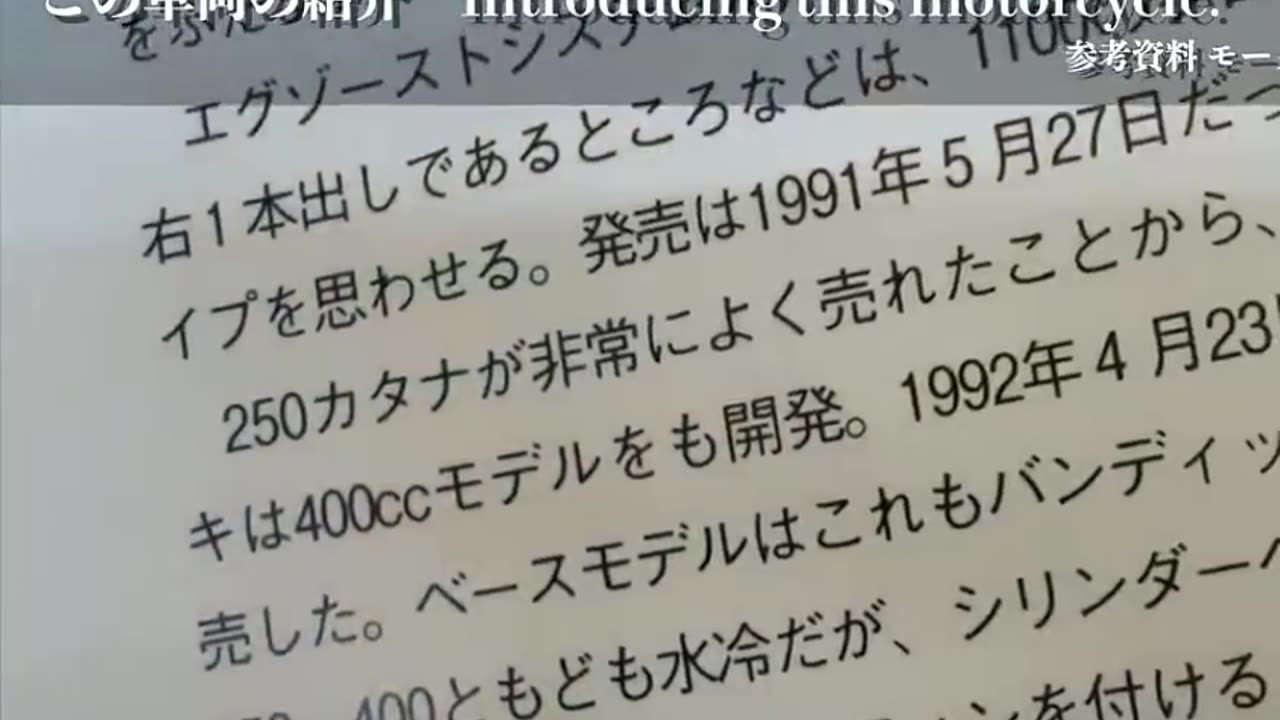 この車両の紹介 Introducing this motorcycle.
参考資料 モー
エグゾーストシステ
右1本出しであるところなどは、1100
ィプを思わせる。発売は1991年5月27日だっ
250カタナが非常によく売れたことから、
キは400ccモデルをも開発。1992年4月23
売した。ベースモデルはこれもバンディッ
400ともども水冷だが、シリンダーヘ
ンを付ける